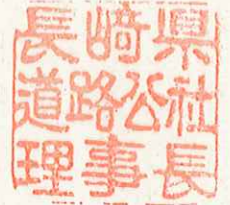 長崎県
道路公社
理事長